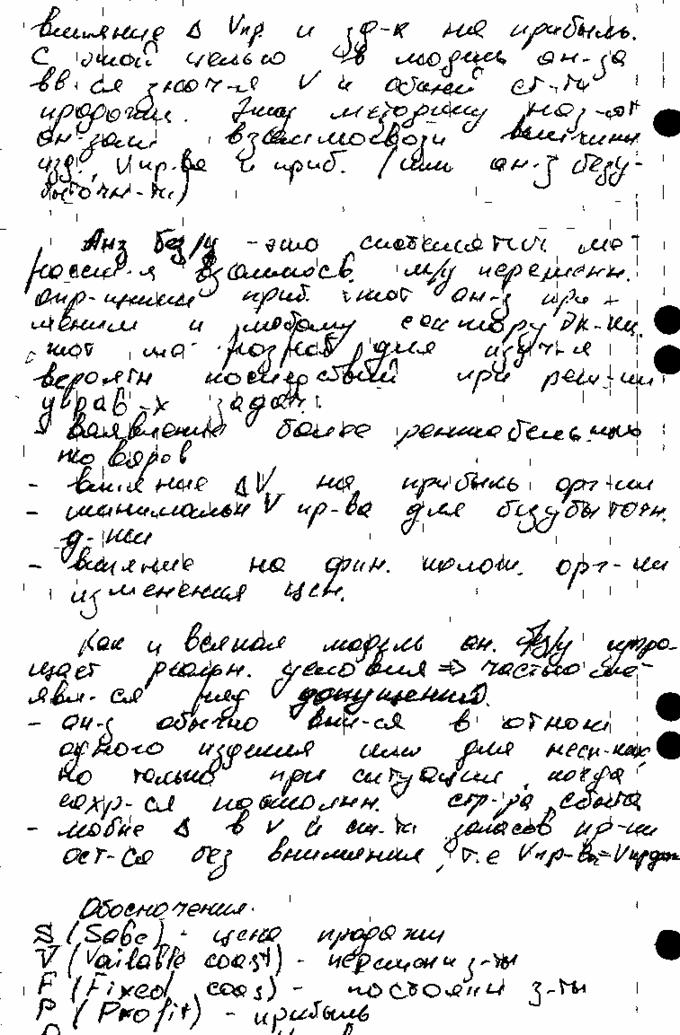 влияние Δ Vпр и за-к на прибыль.
С этой целью в модель ан-за
вв-ся знач-я V и общей ст-ти
продукции. Эту методику наз-ют
ан-зом взаимосвязи величины
изд, Vпр-ва и приб. (или ан-з безу-
быточн-ти)
Анз без/у - это систематич
взаимосв. м/у переменн.
опр-щими приб. этот ан-з при-
меним к любому сектору эк-ки.
для изуч-я
вероятн последствий при реш-ии
управ-х задач:
- выявление более рентабельных
товаров
- влияние ΔV на прибыль орг-ии
- минимальн V пр-ва для безубыточн.
д-ти
- влияние на фин. полож. орг-ии
изменения цен.
Как и всякая модель ан. без/у упро-
щает реальн. условия => частью ее
явл-ся ряд допущений.
- ан-з обычно вып-ся в отнош
одного изделия или для неск-ких,
но только при ситуации, когда
сохр-ся постоянн. стр-ра сбыта
- любые Δ в V и ст-ти запасов пр-ии
ост-ся без внимания, т.е Vпр-ва=Vпрдж
Обозначения.
S (Sabe) - цена продажи
V (Vailable coast) - переменн з-ты
F (Fixed coas) - постоянн з-ты
P (Profit) - прибыль